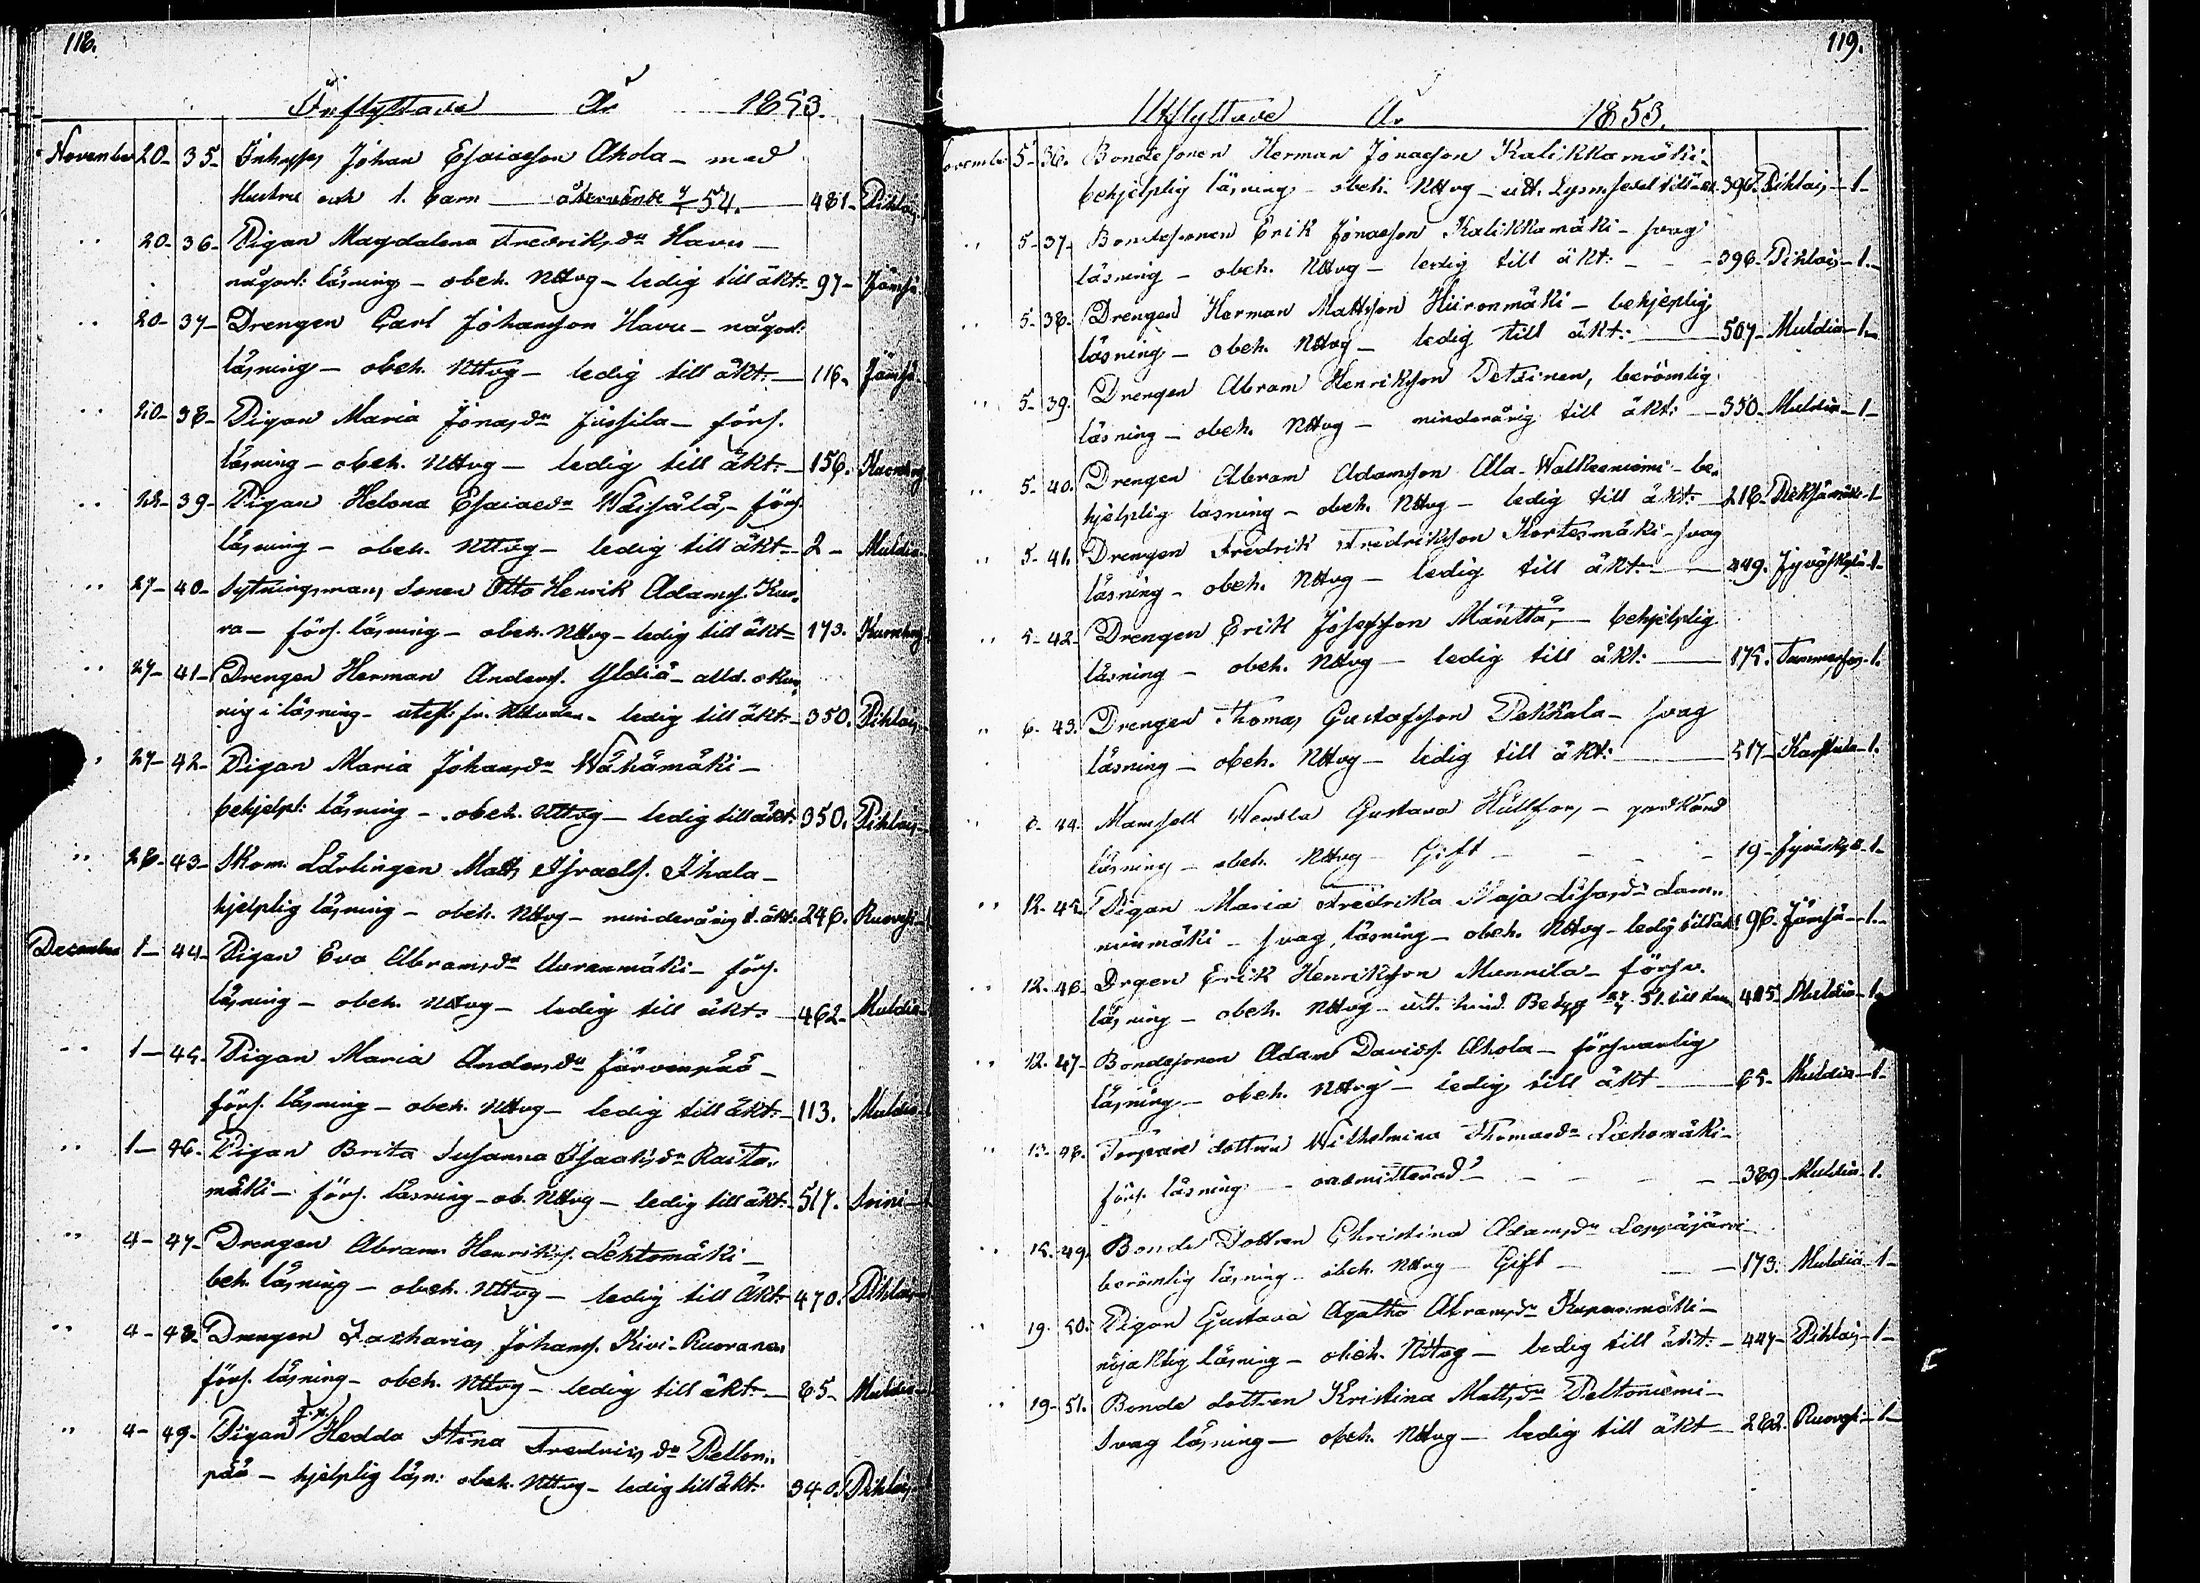 118.
Inflyttade År 1853.
November 20- 35- Inhyses Johan Esaiasson Ahola - med
Hustru och 1. barn - återvände 54. - 481- Pihlais
" 20- 36- Pigan Magdalena Fredriksdr Havu -
någorl: läsning - obeh. Nttvg - ledig till äkt:- 97- Jämsä
" 20- 37- Drengen Carl Johansson Havu - någorl:
läsning - obeh. Nttvg - ledig till äkt:- 116- Jämsä
" 20- 38- Pigan Maria Jonasdr Jussila - förs.
läsning - obeh. Nttvg - ledig till äkt:- 156.
" 22- 39- Pigan Helena Esaiaedr Wäisälä, - förs.
läsning - obeh. Nttvg - ledig till äkt:- 2- Muldia
" 27- 40- Sytningsmans Sonen Otto Henrik Adams.
ra - förs. läsning - obeh. Nttvg - ledig till äkt:- 173.
" 27- 41- Drengen Herman Anders. Yldiä - alld. okun-
nig i läsning - utesl. fr. Nttvden - ledig till äkt:- 350. Pihlais
" 27- 42- Pigan Maria Johansdr Wähämäki -
behjelpl: läsning - obeh. Nttvg - ledig till äkt: 350. Pihlais
" 28- 43- Skom. Lärlingen Matts Israels. Ihala -
hjelplig läsning - obeh. Nttvg - minderårig t. äkt: 246. Ruovesi
December 1- 44- Pigan Eva Abramsdr Uuranmäki - förs.
läsning - obeh. Nttvg - ledig till äkt:- 462- Muldia
" 1- 45. Pigan Maria Andersdr Järvenpää -
förs. läsning - obeh. Nttvg - ledig till äkt:- 113. Muldia
" 1- 46. Pigan Brita Susanna Isaaksdr Rasto-
mäki - förs. läsning - ob. Nttvg - ledig till äkt:- 517.
" 4- 47- Drengen Abram Henriks. Lehtomäki -
beh. läsning - obeh. Nttvg - ledig till äkt:- 470. Pihlais
" 4- 48- Drengen Zacharias Johans. Kivi-Ruoranen
förs. läsning - obeh. Nttvg - ledig till äkt:- 65- Muldia
" 4- 49- Pigan Hedda Stina Fredriksdr Pellon-
pää - hjelplig läsn: obeh. Nttvg - ledig till äkt: 340. Pihlais
119.
Utflyttade År 1853.
November 5- 36. Bondesonen Herman Jonasson Kalikkamäki -
behjelplig läsning - obeh. Nttvg - utt. Lysnsedel till äkt. 396. Pihlais - 1-
" 5- 37- Bondesonen Erik Jonasson Kalikkamäki - svag
läsning - obeh. Nttvg - ledig till äkt: - 396- Pihlais - 1-
" 5- 38. Drengen Herman Mattsson Hiironmäki - behjeplig
läsning - obeh. Nttvg - ledig till äkt: - 507- Muldia - 1-
" 5- 39. Drengen Abram Henriksson Petäinen, berömlig
läsning - obeh. Nttvg - minderårig till äkt: - 350- Muldia - 1-
" 5- 40. Drengen Abram Adamsson Ala-Walkeeniemi - be-
hjelplig läsning - obeh. Nttvg - ledig till äkt:- 218- Pieksämäki - 1-
" 5- 41. Drengen Fredrik Fredriksson Kortesmäki - svag
läsning - obeh. Nttvg - ledig till äkt: - 449. Jyväskylä - 1-
" 5- 42- Drengen Erik Josefsson Mänttä, - behjelplig
läsning - obeh. Nttvg - ledig till äkt: - 175. Tammerfors - 1.
6- 43. Drengen Thomas Gustafsson Pekkala - svag
läsning - obeh. Nttvg - ledig till äkt: - 517- Karstula - 1.
" 8- 44. Mamsell Wendla Gustava - godkänd
läsning - obeh. Nttvg - Gift - 19- Jyväskylä - 1-
" 12- 45. Pigan Maria Fredrika Maja Lisasdr Lam-
minmäki - svag läsning - obeh. Nttvg - ledig till äkt: 96. Jämsä - 1-
" 12. 46- Drgen Erik Henriksson Munnila - försv.
läsning - obeh. Nttvg - utt. hind. Betyg 51. till 405 Muldia - 1-
" 12. 47- Bondesonen Adam Davids. Ahola - försvarlig
läsning - obeh. Nttvg - ledig till äkt - 65- Muldia - 1-
" 13- 48. Torpare dottren Wilhelmina Thomaedr Lehomäki -
förs. läsning - oadmitterad - 389- Muldia - 1.
" 15. 49. Bonde Dottren Christina Adamsdr Leppäjärvi -
berömlig läsning - obeh. Nttvg - Gift - 173. Muldia - 1-
" 19. 50. Pigan Gustava Agatha Abramsdr Kuparimäki -
nöjaktig läsning - obeh. Nttvg - ledig till äkt: - 447- Pihlais - 1-
" 19- 51. Bonde dottren Kristina Mattsdr Peltoniemi -
Svag läsning - obeh. Nttvg - ledig till äkt - 282. Ruovesi - 1-